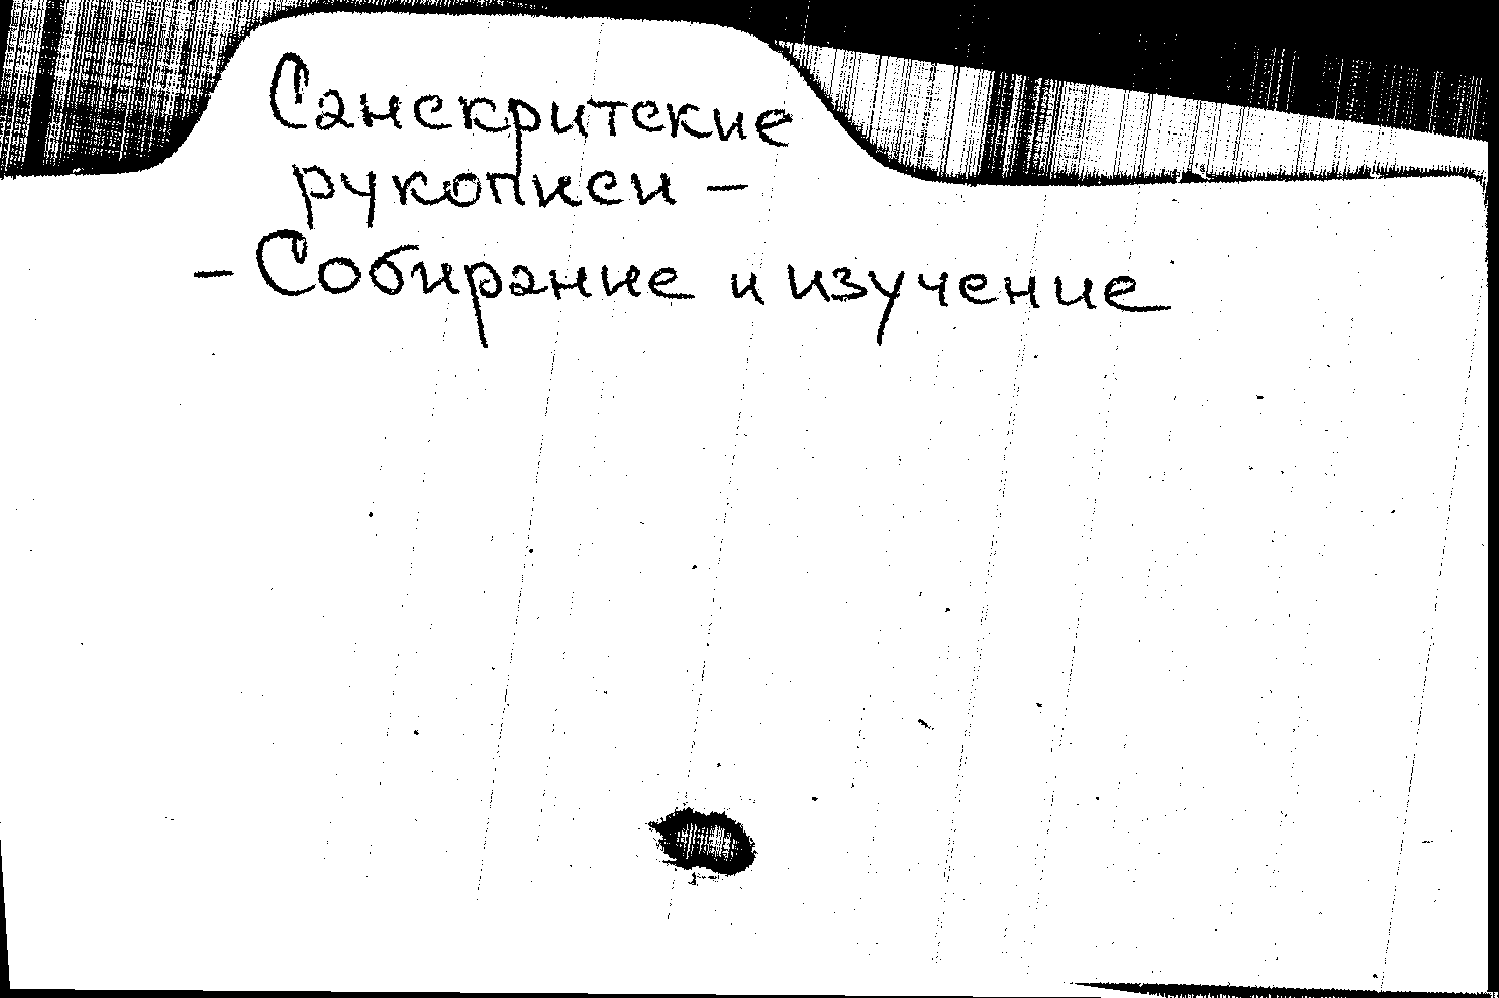 Санскритские
рукописи –
– Собирание и изучение